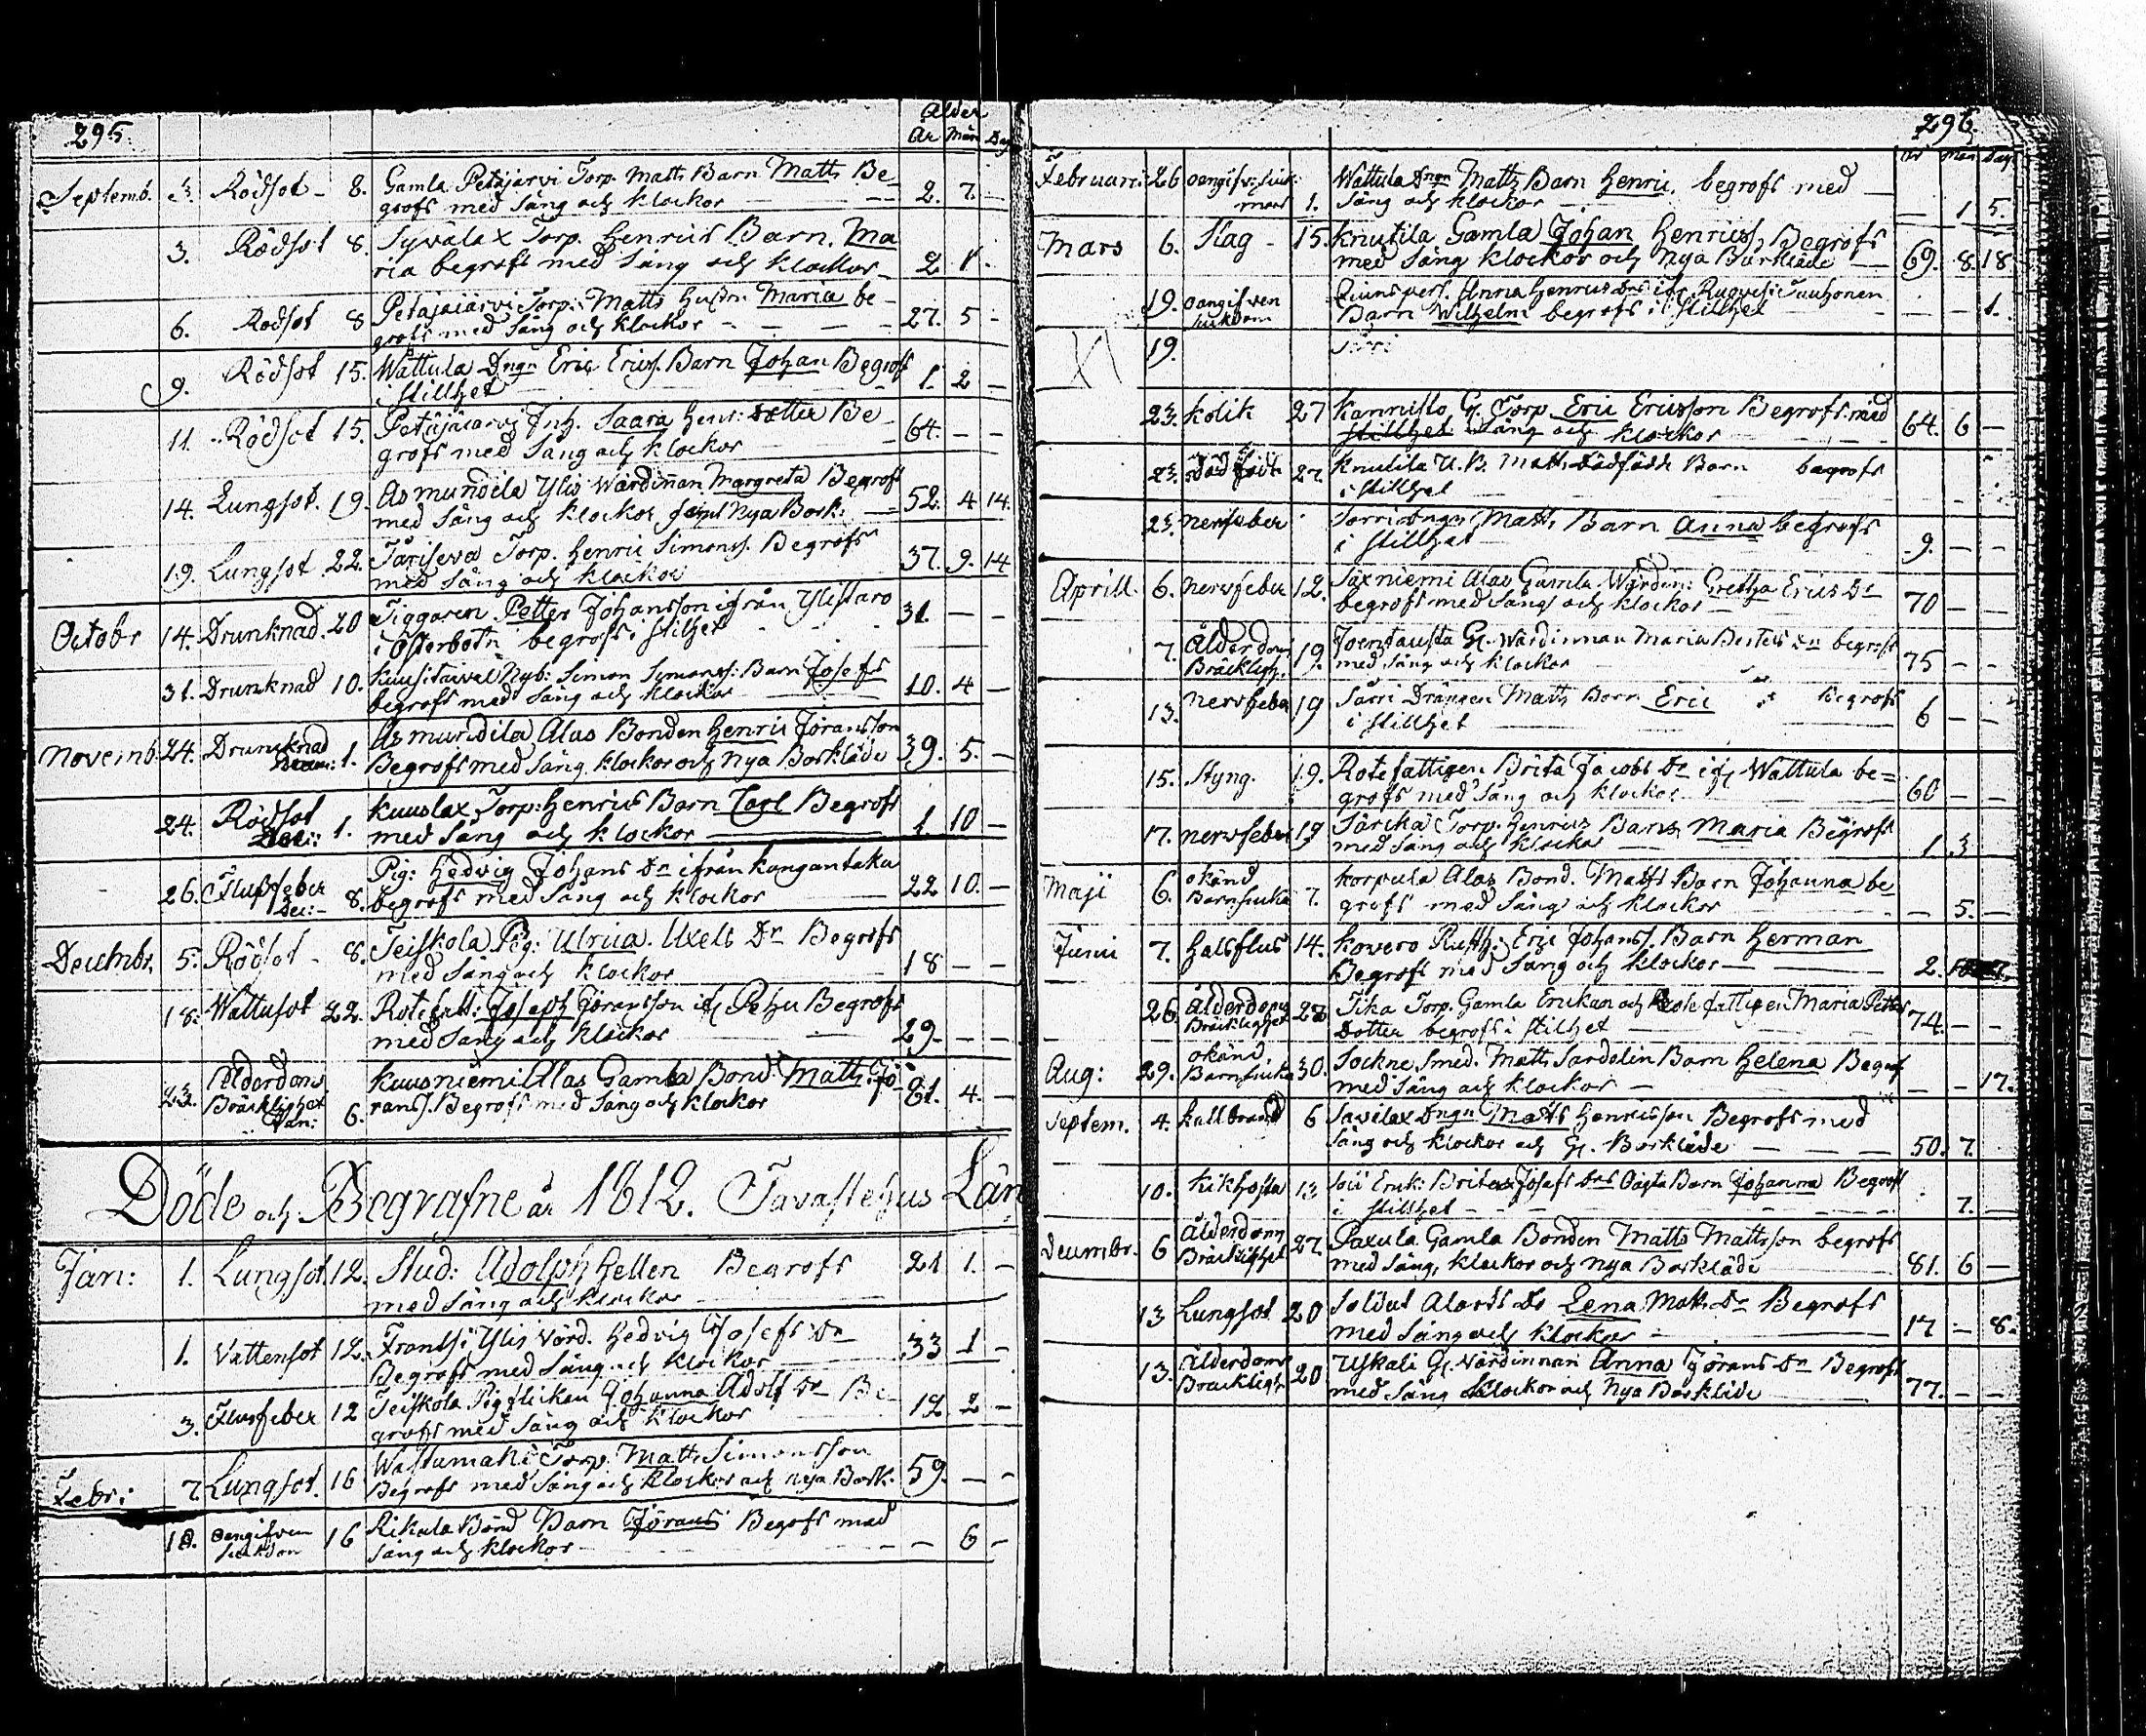 295.
Ålder
År Mån Dag
Septemb. 3. Rödsot - 8. Gamla Petäjärvi Torp. Matts Barn Matts Be-
grofs med Sång och klockor 2. 7. -
3. Rödsot 8. Syvälax Torp. Henrics Barn. Ma
ria begrofs med Sång och klockor 2 1 -
6. Rödsot 8 Petäjäiärvi Torp. Matts Hustr. Maria be-
grofs med Sång och klockor - 27. 5 -
9. Rödsot 15. Wattula Dngn Eric Erics. Barn Johan Begrofs
Stillhet 1. 2 -
11. Rödsot 15. Petäjäiärvi Inh. Saara Henr: dotter Be-
grofs med Sång och klockor 64. - -
14. Lungsot. 19. Asmundela Ylis Wärdinnan Margreta Begrofs
med Sång och klockor samt Nya Bork: 52. 4 14.
19. Lungsot 22. Järiseva Torp. Henric Simonss. Begrofs
med Sång och klockor 37. 9. 14
Octobr 14. Drunknad. 20 Tiggaren Petter Johansson ifrån Ylistaro
i Österbotn begrofs i stilhet 31. -
31. Drunknad 10. Nyb: Simon Simonss: Barn Josefs
begrofs med Sång och klockor 10. 4 -
Novemb. 24. Drunknad
1. Asmundila Alas Bonden Henric Jöransson
Begrofs med Sång klockor och Nya Borkläde 39. 5. -
24. Rödsot
Dec: 1. Kuuslax Torp: Henrics Barn Carl Begrofs
med Sång och klockor 1. 10 -
26. Flussfeber
Dec: - 8. Pig: Hedvig Johans Dr ifrån Kangantaka
begrofs med Sång och klockor 22 10. -
Decembr. 5. Rödsot - 8. Teiskola Pig: Ulrica. Axels Dr Begrofs
med Sång och klockor 18 - -
18. Wattusot 22. Rotefatt: Joseph Jöransson Pehu Begrofs
med Sång och klockor 29. - -
23. Ålderdoms
Bräcklighet
Jan: 6. Kuusniemi Alas Gamla Bond. Matts Jö-
ranss. Begrofs med Sång och klockor 81. 4. -
Döde och Begrafne år 1812. Tavastehus Län
Jan: 1. Lungsot. 12. Stud: Adolph Hellen Begrofs
med Sång och klockor 21 1. -
1. Vattensot 12. Frantsi Ylis Värd. Hedvig Josefs Dr
Begrofs med Sång och klockor 33 1 -
3. Flussfeber 12 Teiskola Pigflickan Johanna Adolfs Dr Be
grofs med Sång och klockor 12 2 -
Febr: 7. Lungsot. 16 Wastamaki Torp. Matts Simonsson
Begrofs med Sång och klockor och nya Bork: 59. - -
18. Oangifven
Sjukdom 16 Rikala Bond Barn Jörans Begrofs med
Sång och klockor - - 6 -
296.
År Mån Dag
Februari: 26 oangifv: Sjuk:
mars 1. Wattula Dngn Matts Barn Henric. begrofs med
Sång och klockor - 1 5.
Mars 6. Slag - 15. Knutila Gamla Johan Henricss. Begrofs
med Sång klockor och Nya Borkläde 69. 8. 18
19. oangifven
Sjukdom Anna Henrics Drs
Barn Wilhelm begrofs i Stillhet - - 1.
19. Särri
23. Kolik 27 Kannisto Gl. Torp. Eric Ericsson Begrofs med
Stillhet Sång och klockor 64. 6 -
23. Död född 27. Knutila U.B. Matts Dödfödde Barn begrofs
i Stillhet
23. nervfeber Särri Dngn Matts Barn Anna begrofs
i stillhet 9. - -
Aprill. 6. nervfeber 12. Saxniemi Alas Gamla Wärdin: Gretha Erics Dr
begrofs med Sång och klockor 70 - -
7. Ålderdoms
Bräckligh. 19. Joentausta Gl. Wärdinnan Maria Bertels Dr begrofs
med Sång och klockor 75 - -
13. nervfeber 19 Särri Drängen Matts Barn Eric Begrofs
i Stillhet 6 - -
15. Styng. 19. Rotefattigen Brita Jacobs Dr Wattula be-
grofs med Sång och klockor 60 - -
17. nervfeber 19 Särcka Torp. Henrics Barn Maria Begrofs
med Sång och klockor 1 3
Maji 6. okänd
Barnsjuka 7. Korpula Alas Bond. Matts Barn Johanna be
grofs med Sång och klockor - 5. -
Juni 7. Halsflus 14. Kovero Eric Johanss. Barn Herman
Begrofs med Sång och klockor 2.
26. Ålderdoms
Bräcklighet 28 Tika Torp. Gamla Enckan och Rotefattigen Maria Petters
Dotter begrofs i stilhet 74. - -
Aug: 29. okänd.
Barnsjuka 30. Sockne Smed. Matts Sardelin Barn Helena Begrof
med Sång och klockor - - 17.
Septem. 4. kallbrand 6 Savilax Dngn Matts Henricsson Begrofs med
Sång och klockor och Gl. Borkläde 50. 7.
10. Kikhosta 13 Brita Josefs Drs Oägta Barn Johanna Begrofs
i stillhet - 7. -
Decembr. 6 Ålderdoms
Bräcklighet 27. Paxula Gamla Bonden Matts Mattsson begrofs
med Sång, klockor och nya Borkläde 81. 6 -
13 Lungsot 20 Soldat Alards Dr Lena Matts Dr Begrofs
med Sång och klockor 17 - 8.
13. Ålderdoms
Bräckligh 20 Uskali Gl. Värdinnan Anna Jörans Dr Begrofs
med Sång klockor och Nya Borkläde 77. - -